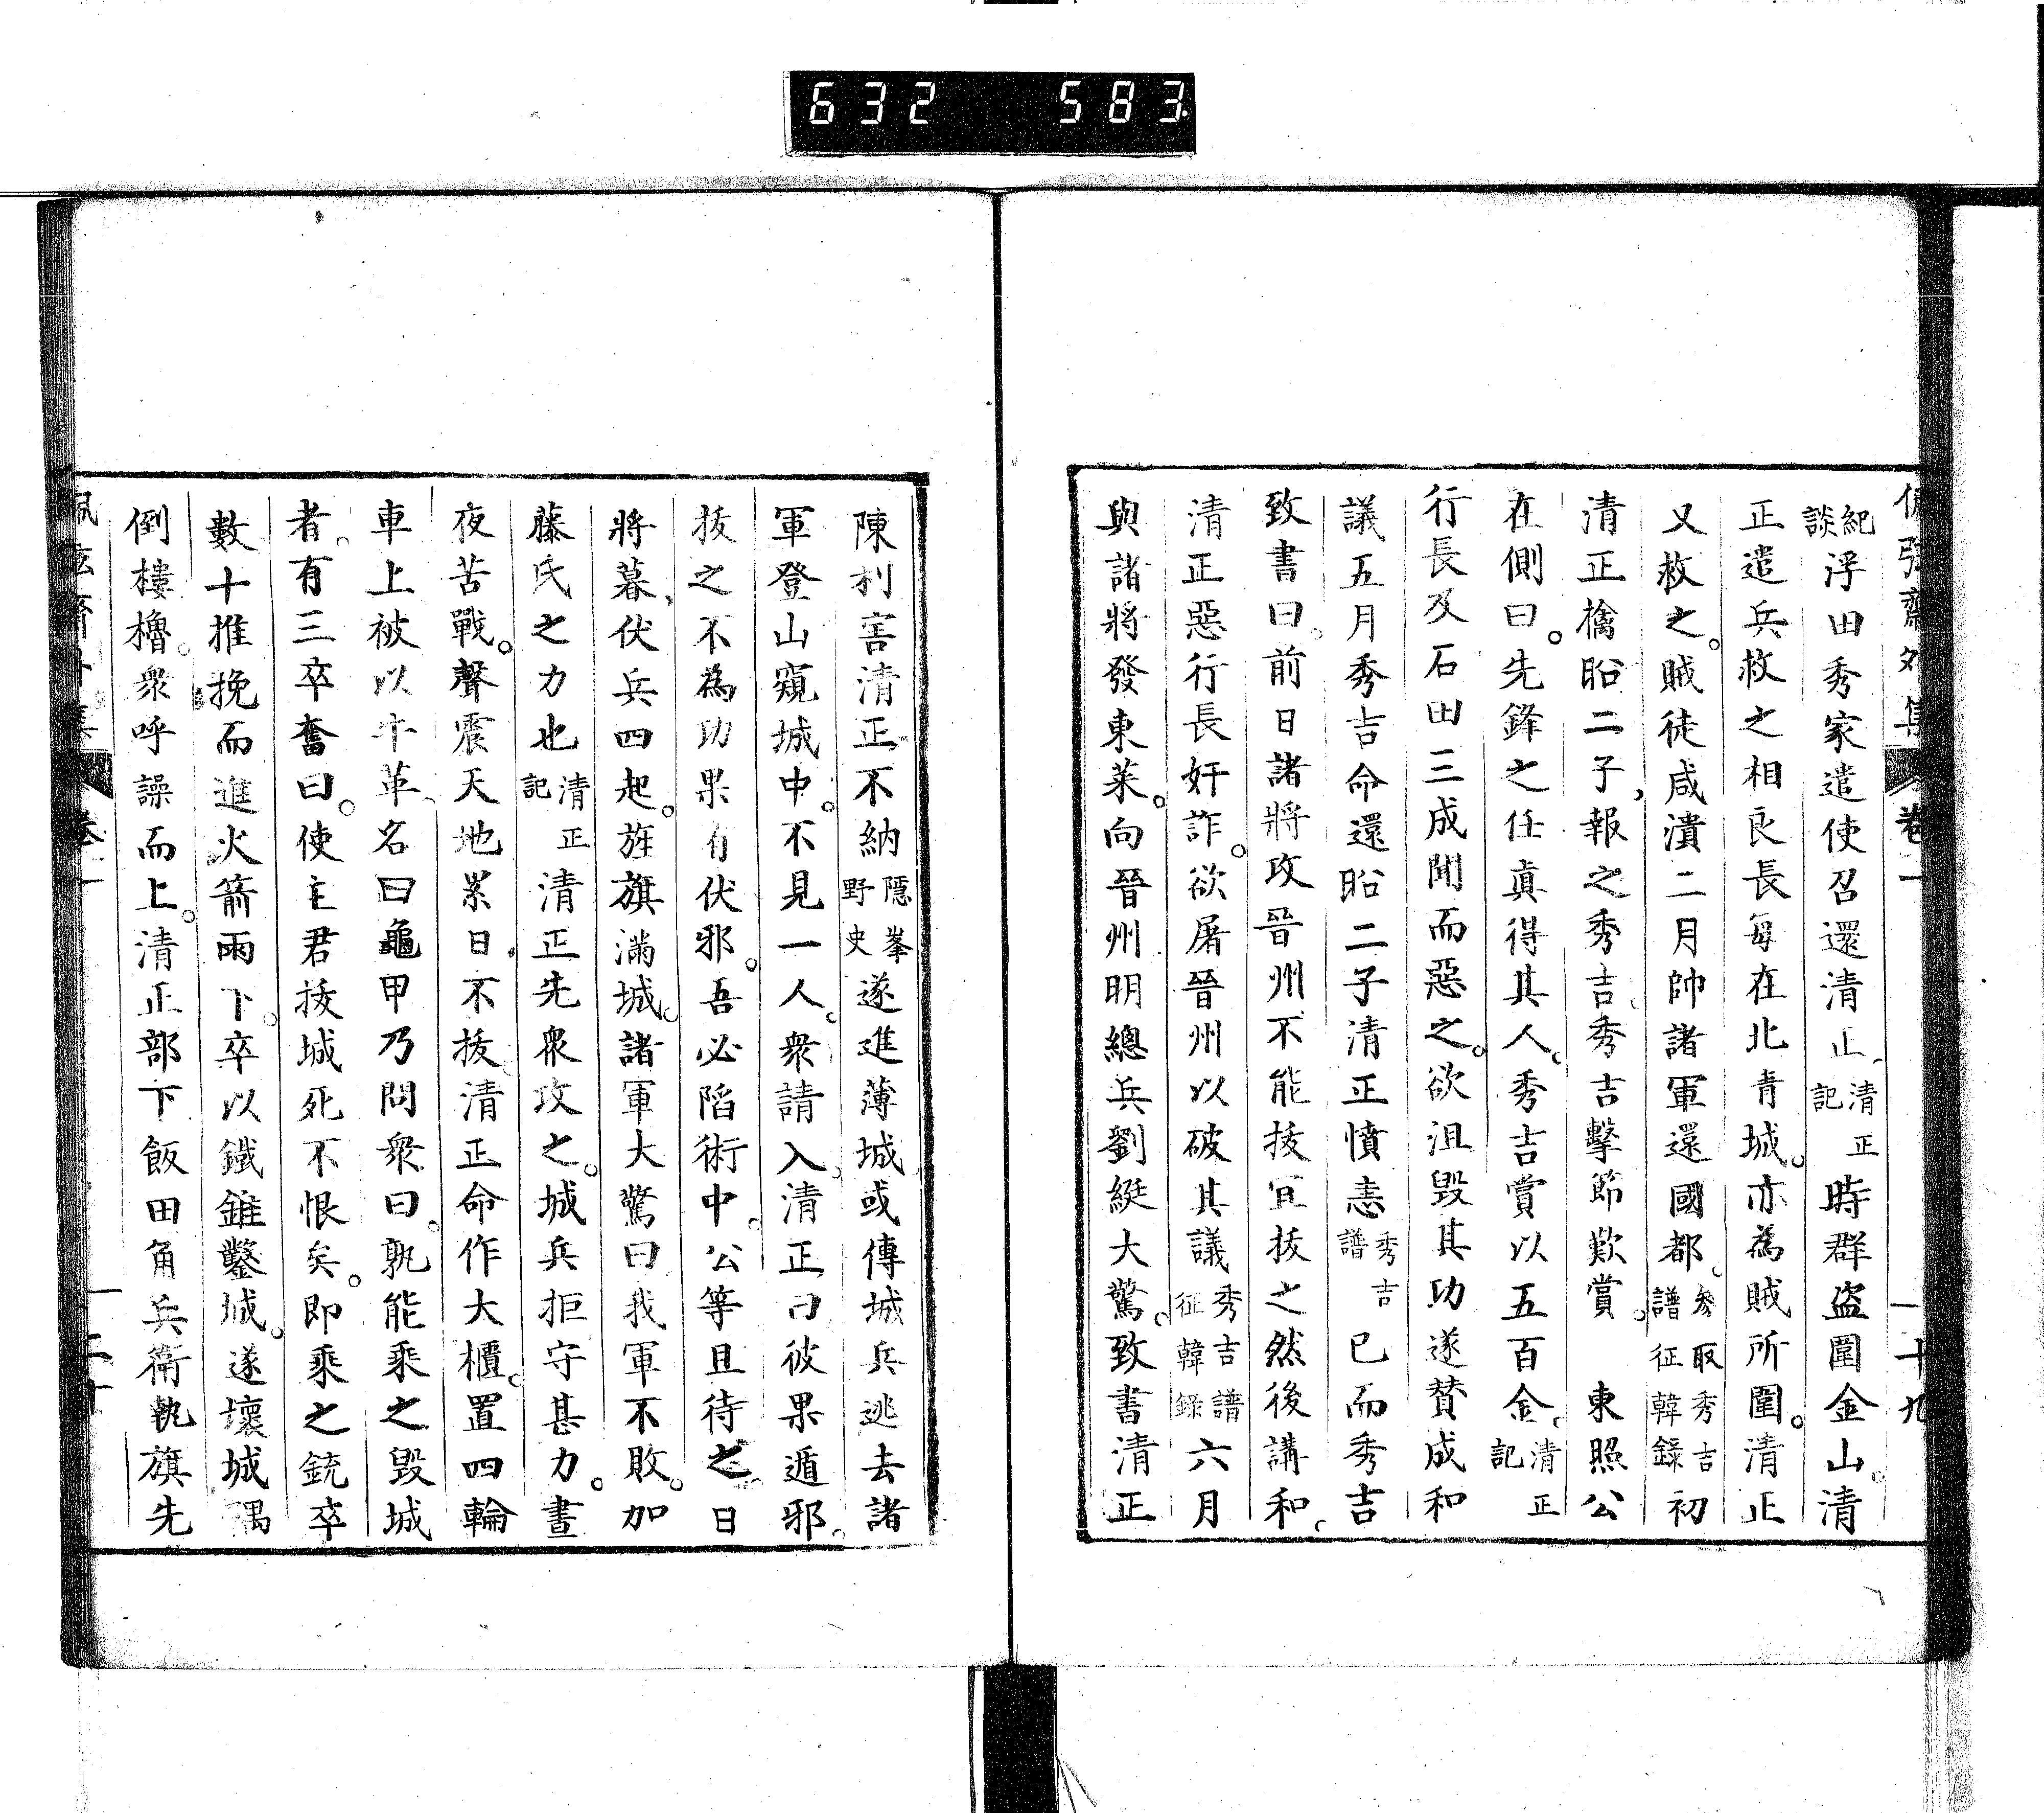 632 583
佩弦齋外集 卷二 二十九
紀談浮田秀家遣使召還清正、清正記時群盗圍金山。清
正遣兵救之相良長毎在北青城。亦為賊所圍。清正
又救之。賊徒咸潰二月帥諸軍還國都。參取秀吉譜征韓録初
清正擒昭二子、報之秀吉。秀吉擊節歎賞。 東照公
在側曰。先鋒之任真得其人。秀吉賞以五百金。清正記
行長及石田三成聞而惡之。欲沮毀其功遂賛成和
議五月秀吉命還昭二子清正憤恚秀吉譜已而秀吉
致書曰。前日諸將攻晉州不能拔宜拔之然後講和。
清正惡行長奸詐。欲屠晉州以破其議秀吉譜征韓録六月
與諸將發東萊。向晉州明總兵劉綎大驚。致書清正
陳利害清正不納隱峯野史遂進薄城或傳城兵逃去諸
軍登山窺城中。不見一人。衆請入。清正曰彼果遁邪。
拔之不為功果有伏邪。吾必陷術中。公等且待之。日
將暮、伏兵四起。旌旗滿城。諸軍大驚曰我軍不敗。加
藤氏之力也清正記清正先衆攻之。城兵拒守甚力。晝
夜苦戰。聲震天地累日不拔。清正命作大櫃。置四輪
車上被以牛革、名曰龜甲乃問衆曰。孰能乘之毀城
者。有三卒奮曰。使主君拔城死不恨矣。即乘之銃卒
數十推挽而進火箭雨下。卒以鐵錐鑿城。遂壞城隅
倒樓櫓。衆呼譟而上。清正部下飯田角兵衛執旗先
佩弦齋外集 卷二 三十